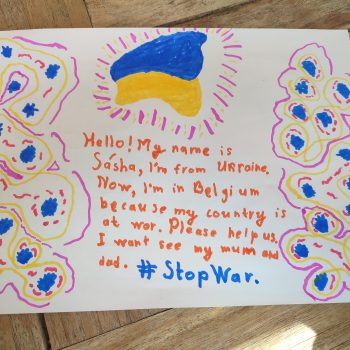 Hello! My name is
Sásha, I'm from Ukraine.
Now, I'm in Belgium
because my country is
at war. Please help us.
I want see my mum and
dad. #StopWar.